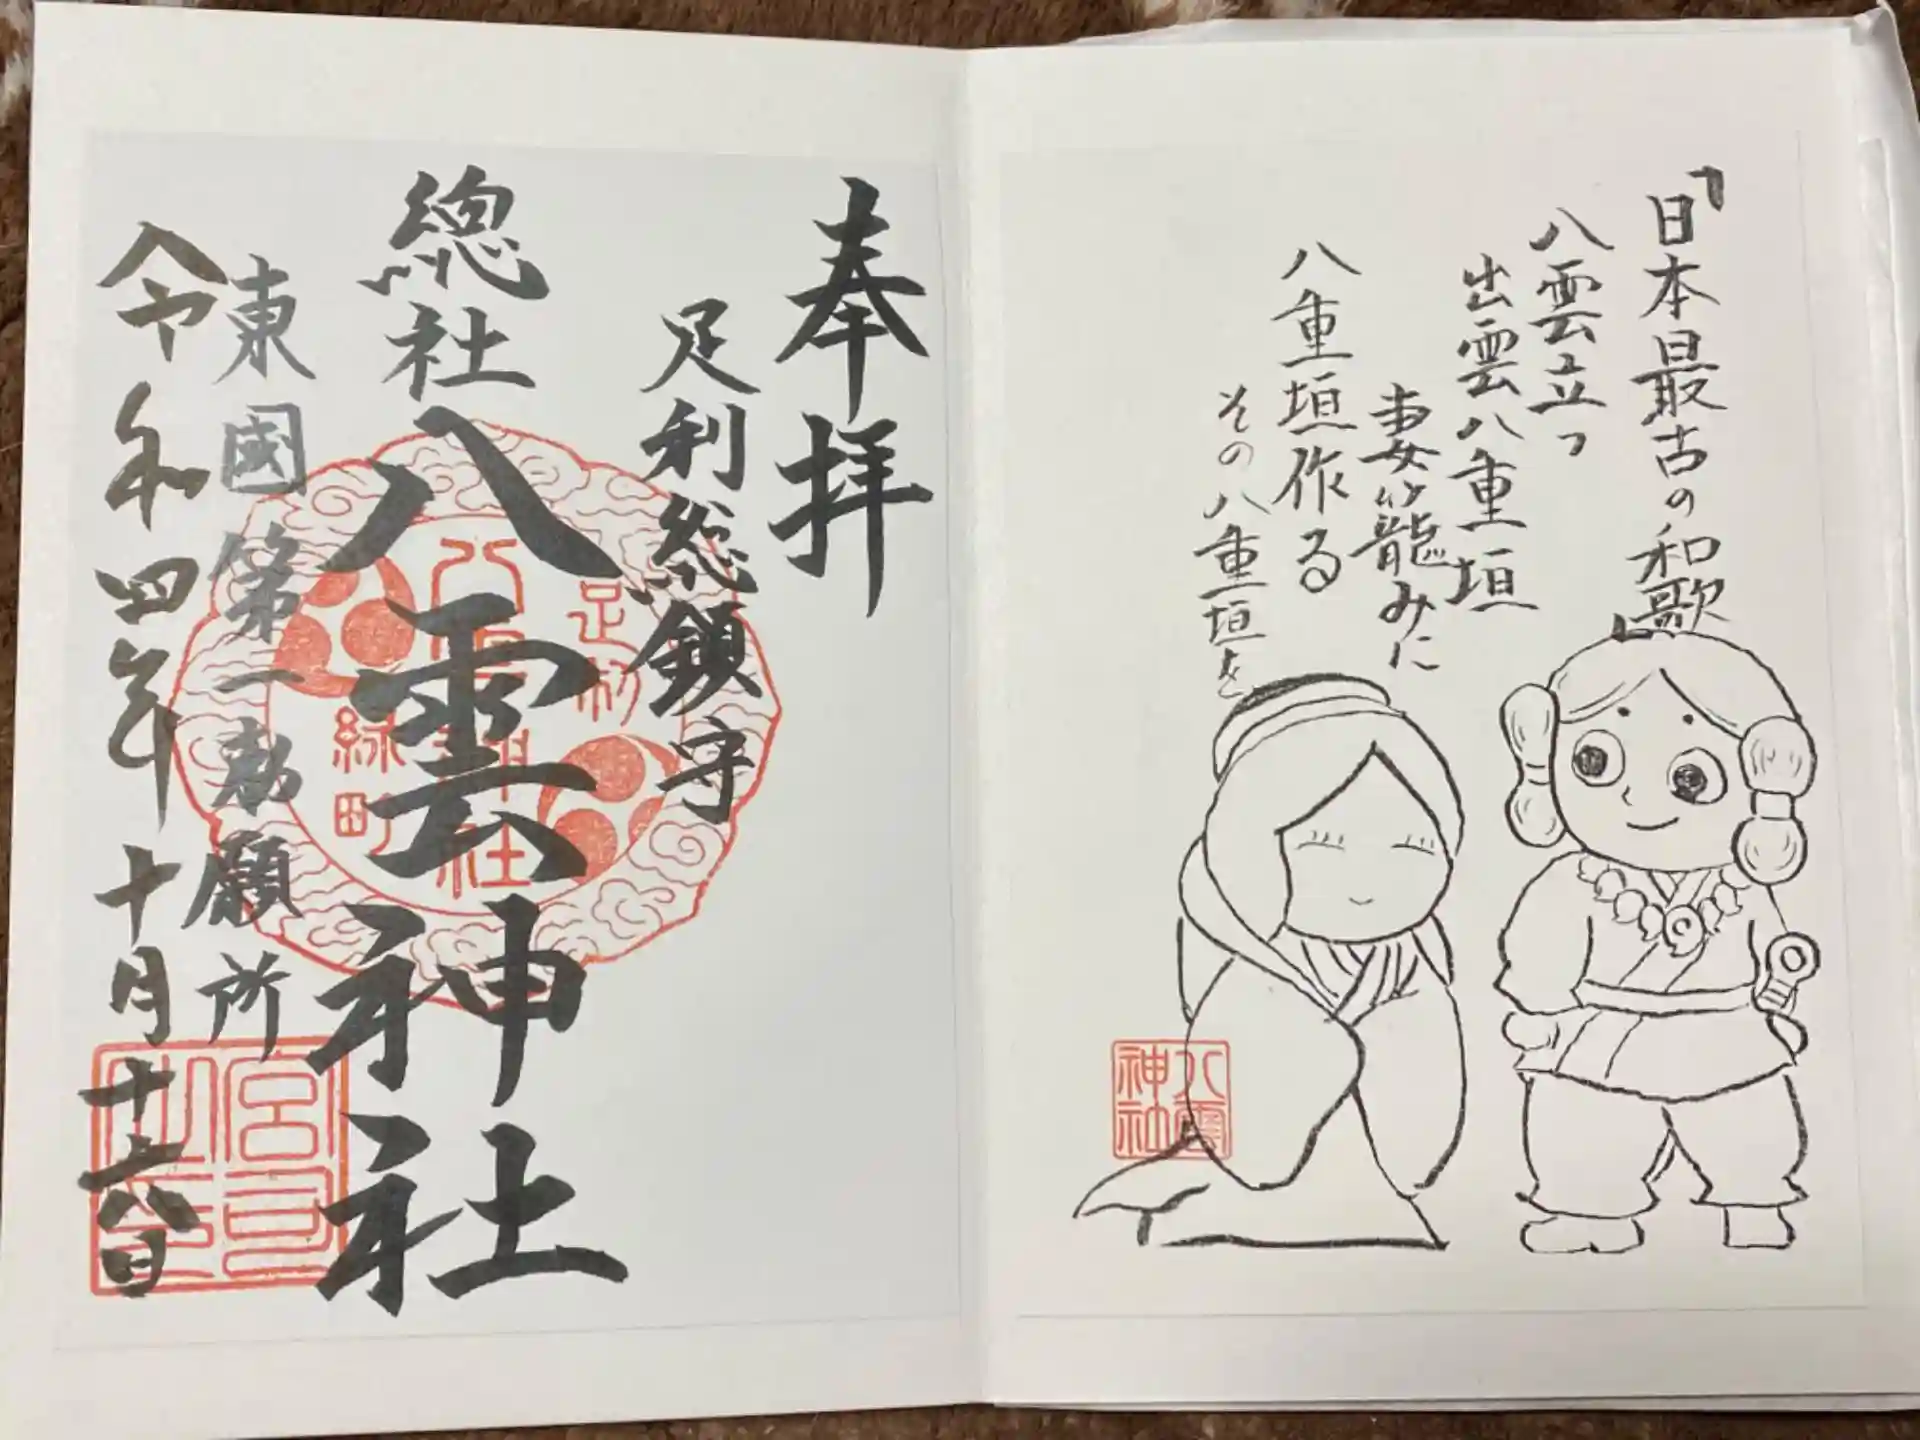 「日本最古の和歌」
八雲立つ
出雲八重垣
妻籠みに
八重垣作る
その八重垣を
八雲
神社
奉拝
足利総鎮守
總社
八雲神社
東國第一勅願所
令和四年十月十六日
足利
八雲神社
緑町
宮司
之印